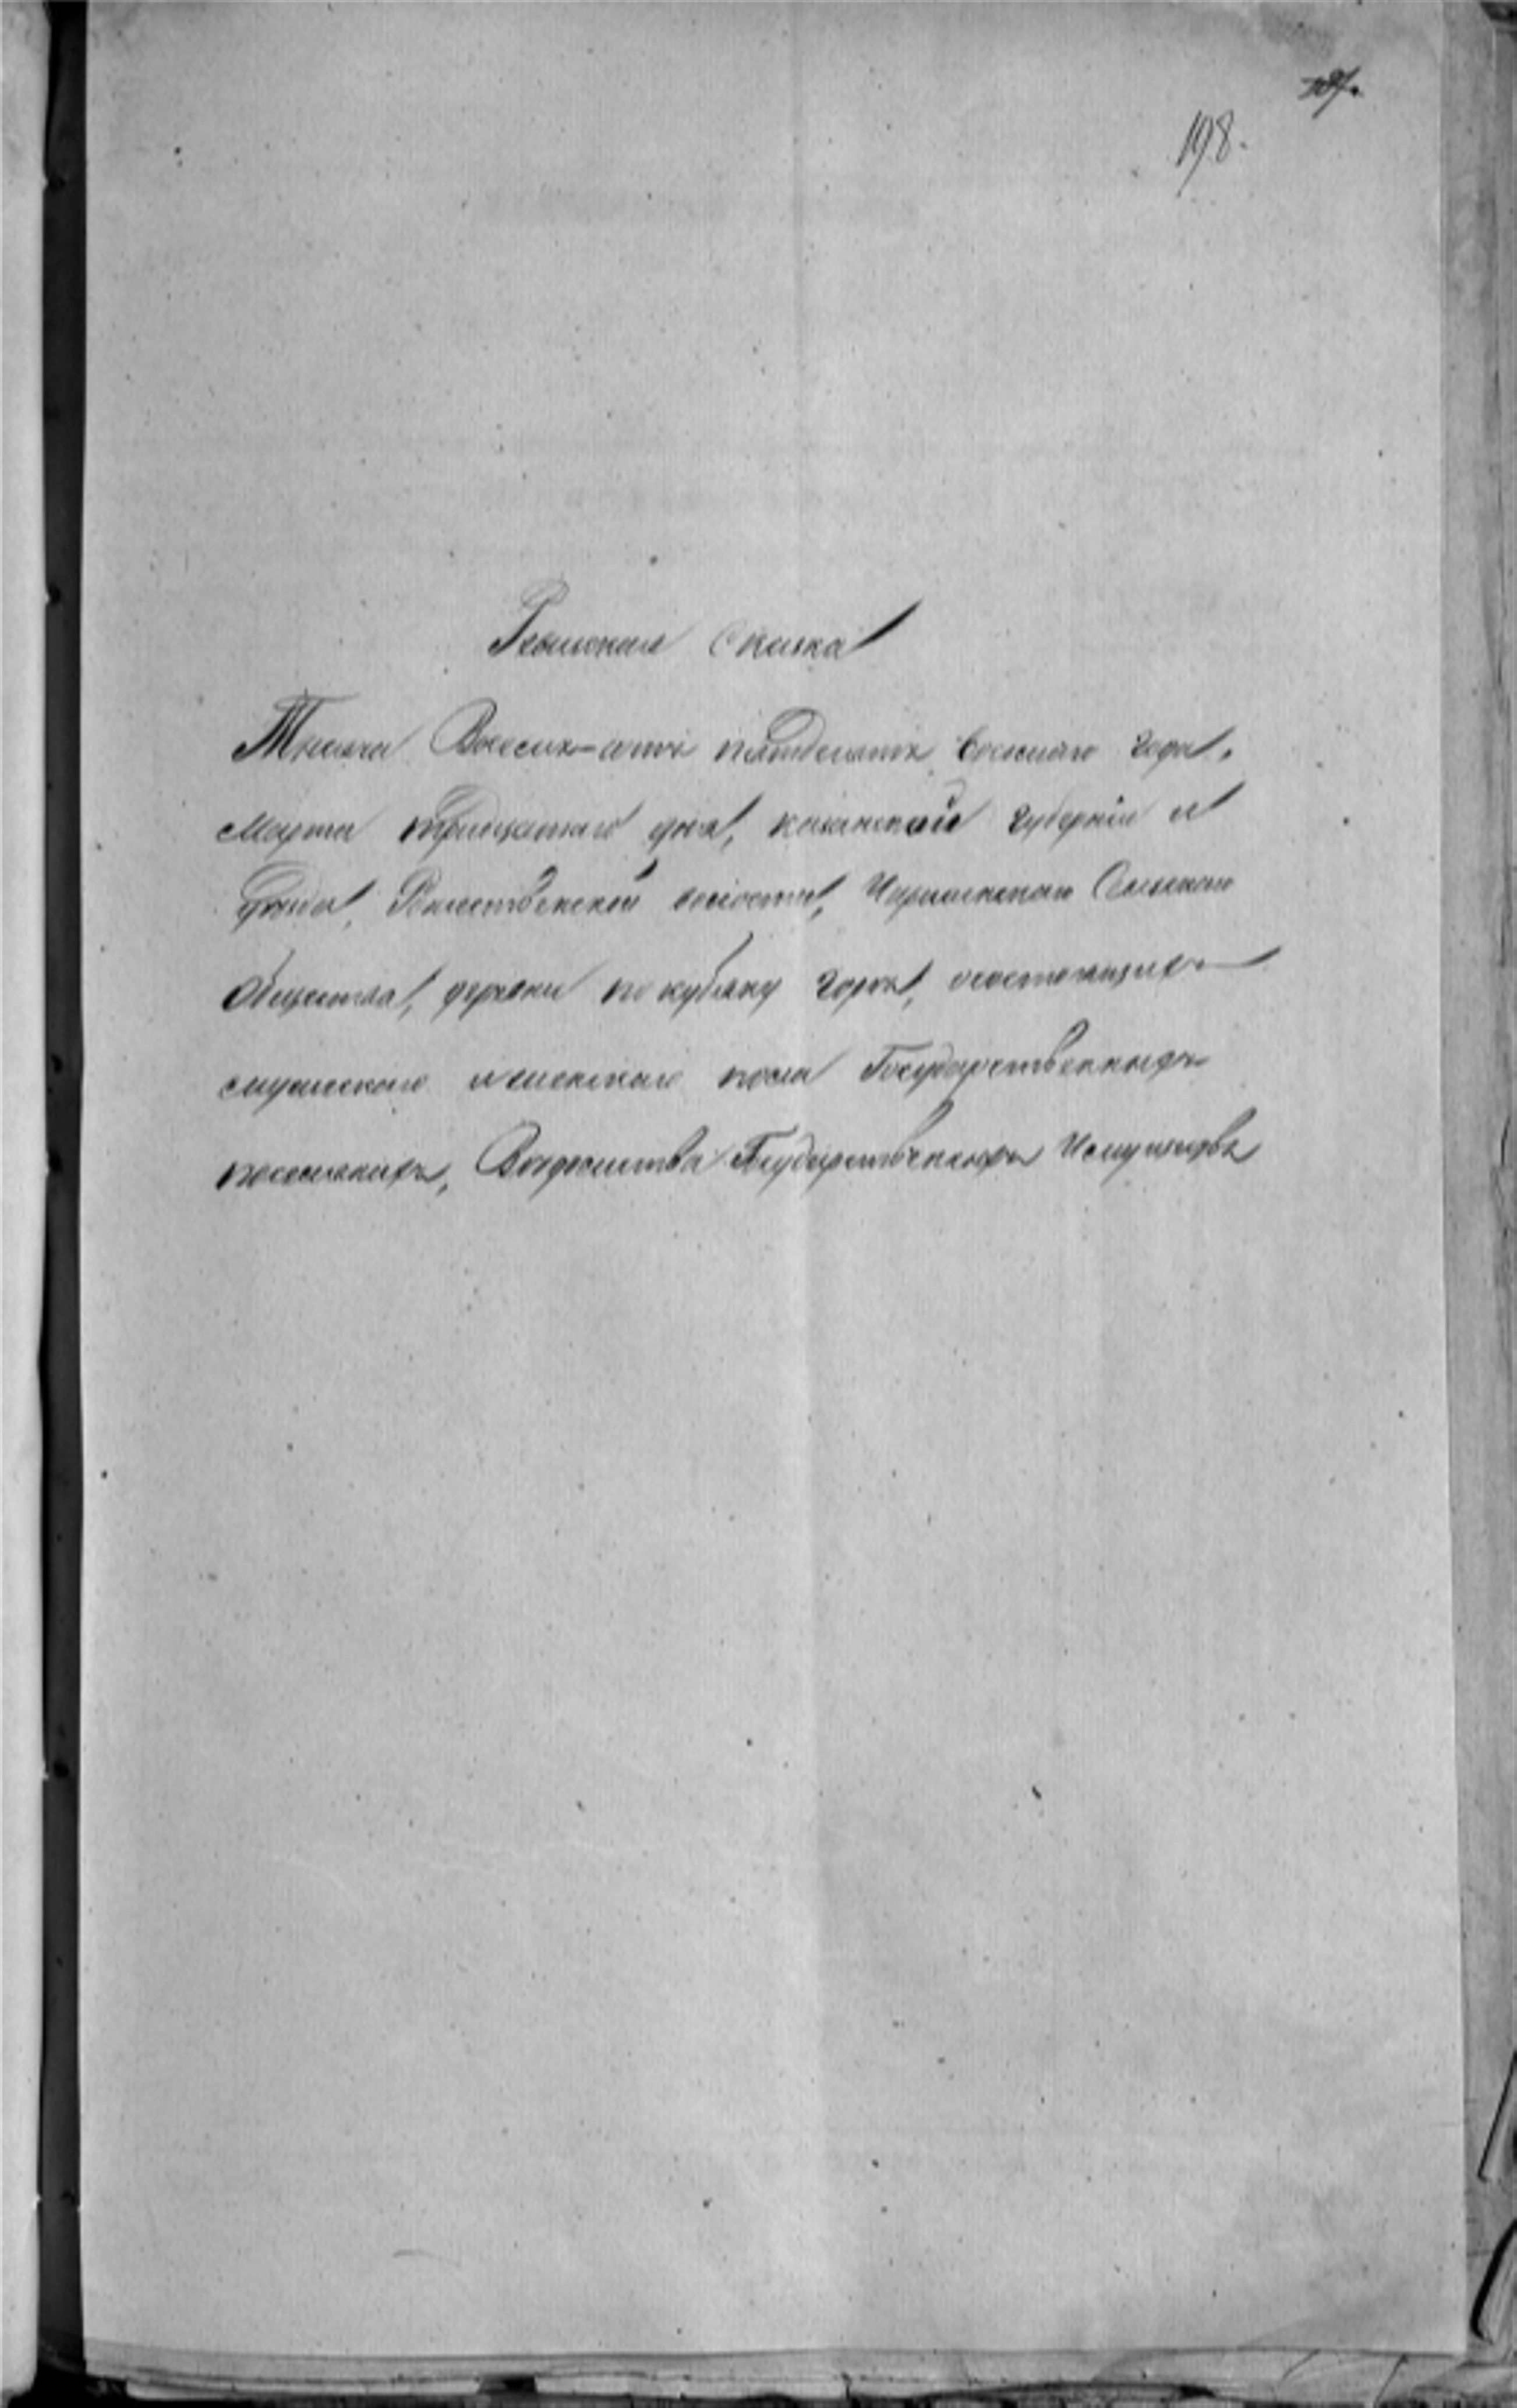 198.
Ревизская Сказка
Тысяча Восемь-сотъ пятдесятъ восьмаго года.
Марта тридцатаго дня, казанской губерніи и
уѣзда, Рожественской волости, Сельскаго
Общества, деревни по кубяку горы, о состоящихъ
мужескаго и женскаго пола Государственныхъ
поселянахъ, Вѣдомства Государственныхъ Имуществъ